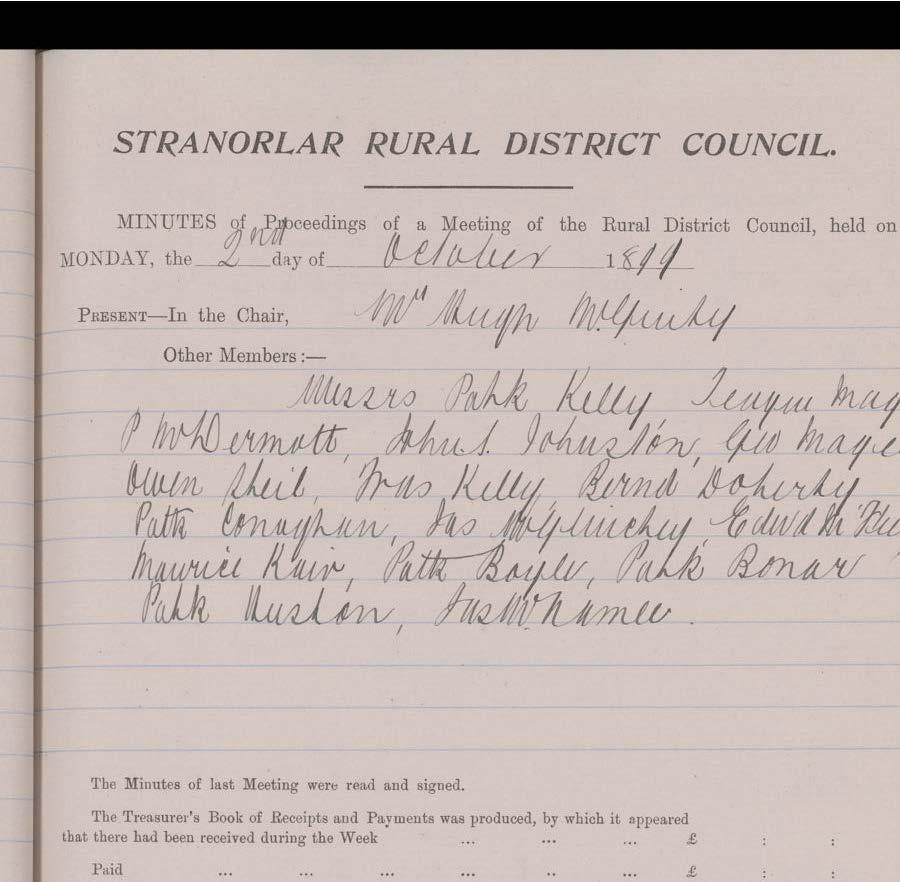 STRANORLAR RURAL DISTRICT COUNCIL.
MINUTES of Proceedings of a Meeting of the Rural District Council, held on
MONDAY, the 2nd day of October 1899
PRESENT—In the Chair, Mr Hugh McGinty
Other Members:—
Messrs Patk Kelly, Teague
P McDermott, John S. Johnston, Geo
Owen Sheil, Fras Kelly, Bernd Doherty
Patk Conaghan, Jas McGlinchey, Edwd
Maurice Kain, Patk Boyle, Patk Bonar
Patk Huston, Jas McNamee.
The Minutes of last Meeting were read and signed.
The Treasurer's Book of Receipts and Payments was produced, by which it appeared
that there had been received during the Week ... ... ... £ : :
Paid ... ... ... ... .. ... £ : :